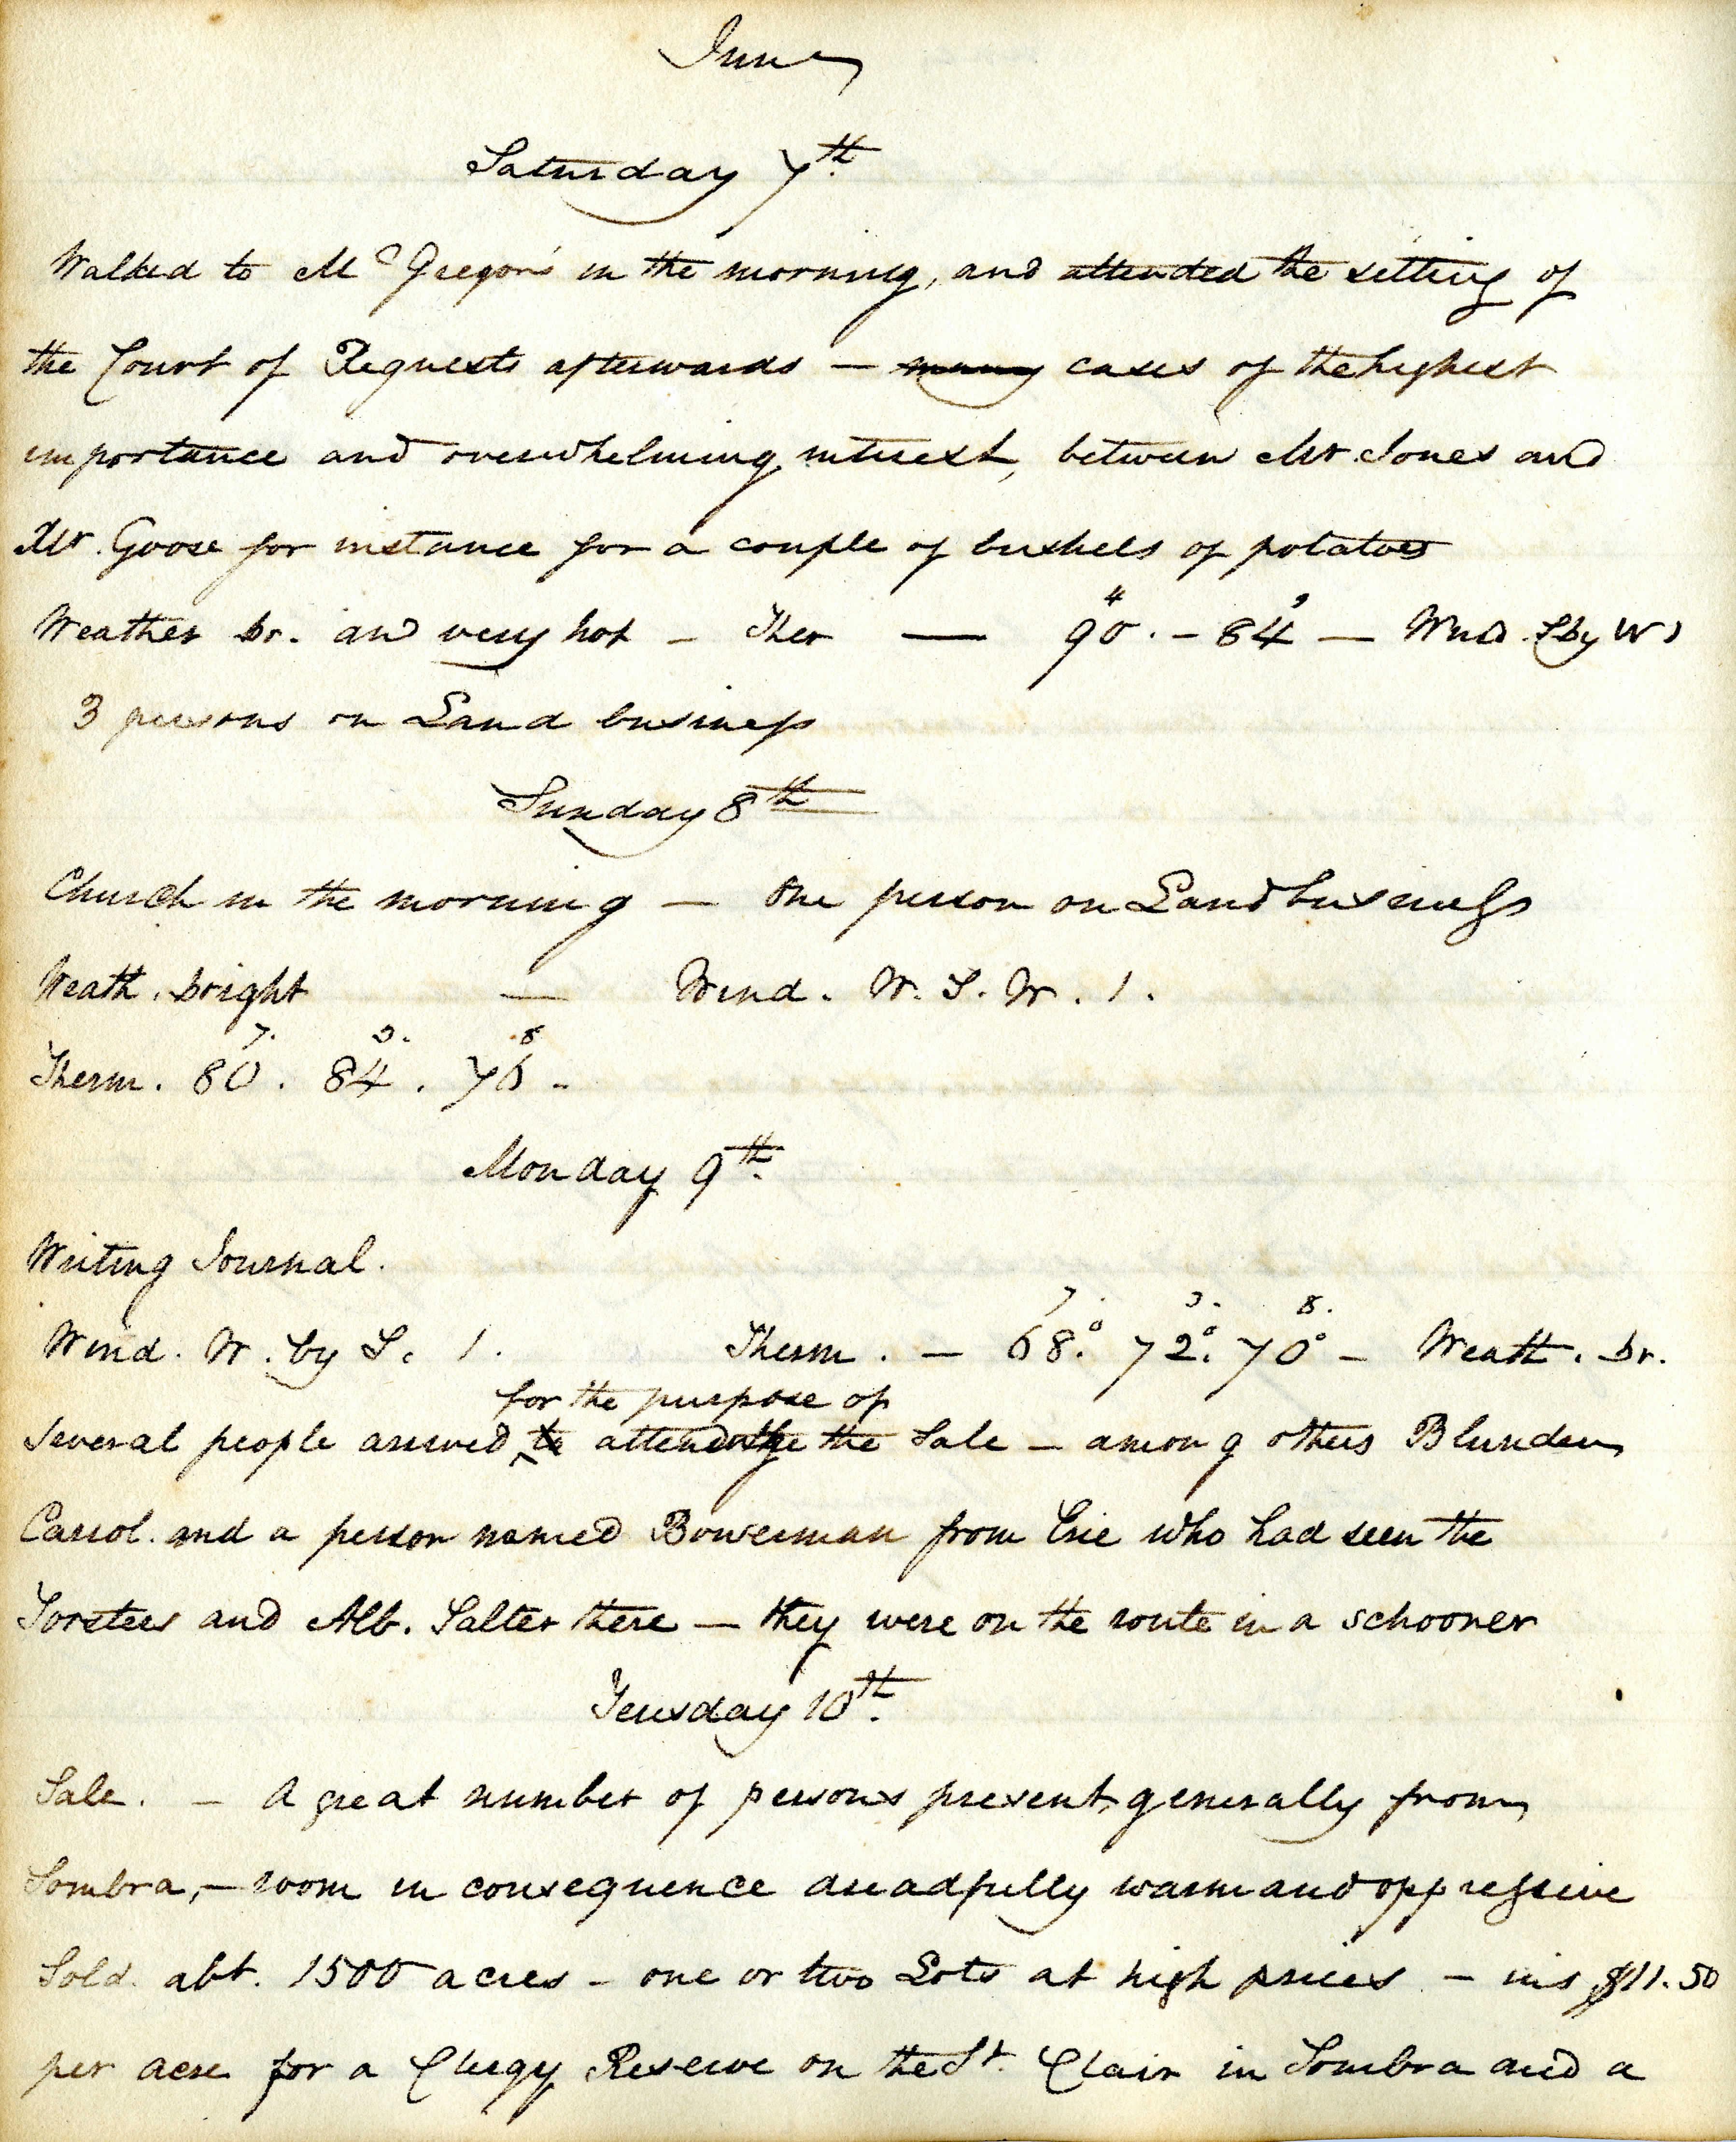 June
Saturday 7th
Walked to McGregor's in the morning, and attended the setting of
the Court of Requests afterwards — many cases of the highest
importance and overwhelming interest, between Mr. Jones and
Mr. Goose for instance for a couple of bushels of potatoes
4 9
Weather br. and very hot — Ther — 90. — 84 — Wind S by W 1
3 persons on Land business
Sunday 8th
Church in the morning — One person on Land business
Weath. bright — Wind. W. S. W. 1.
7. 3. 8
Therm. 80. 84. 76 -
Monday 9th.
Writing Journal.
7. 3. 8.
Wind. W. by S. 1. Therm. — 68°. 72°. 70° — Weath. br.
for the purpose of
Several people arrived to attending the Sale — among others Blunden
Carrol. and a person named Bowerman from Erie who had seen the
and Alb. Salter there — they were on the route in a schooner
Teusday 10th.
Sale. — A great number of persons present, generally from
Sombra, — room in consequence dreadfully warm and oppressive
Sold. abt. 1500 acres — one or two Lots at high prices — $11.50
per acre for a Clergy Reserve on the St. Clair in Sombra and a